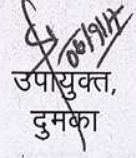 06/9/17
उपायुक्त,
दुमका